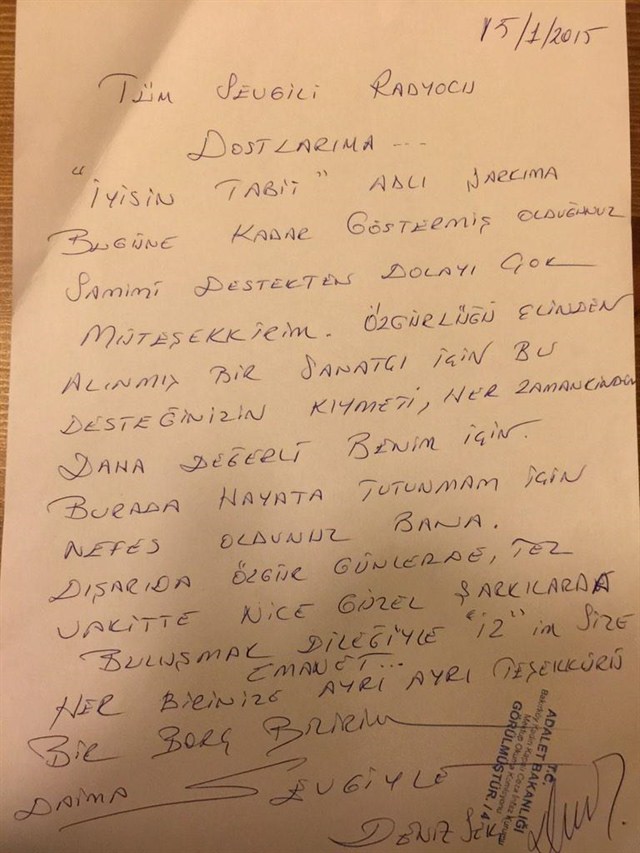 15/1/2015
TÜM SEVGİLİ RADYOCU
DOSTLARIMA ...
"İYİSİN TABİİ" ADLI ŞARKIMA
BUGÜNE KADAR GÖSTERMİŞ OLDUĞUNUZ
SAMİMİ DESTEKTEN DOLAYI ÇOK
MÜTEŞEKKİRİM. ÖZGÜRLÜĞÜ ELİNDEN
ALINMIŞ BİR SANATÇI İÇİN BU
DESTEĞİNİZİN KIYMETİ, HER ZAMANKİNDEN
DAHA DEĞERLİ BENİM İÇİN.
BURADA HAYATA TUTUNMAM İÇİN
NEFES OLDUNUZ BANA.
DIŞARIDA ÖZGÜR GÜNLERDE, TEZ
VAKİTTE NİCE GÜZEL ŞARKILARDA
BULUŞMAK DİLEĞİYLE "İZ" im SİZE
EMANET...
HER BİRİNİZE AYRI AYRI TEŞEKKÜRÜ
BİR BORÇ BİLİRİM
DAİMA SEVGİYLE
DENİZ SEKİ
T.C.
ADALET BAKANLIĞI
Bakırköy Kadın Kapalı Ceza İnfaz Kurumu
Mektup Okuma Komisyonu
GÖRÜLMÜŞTÜR. / 4